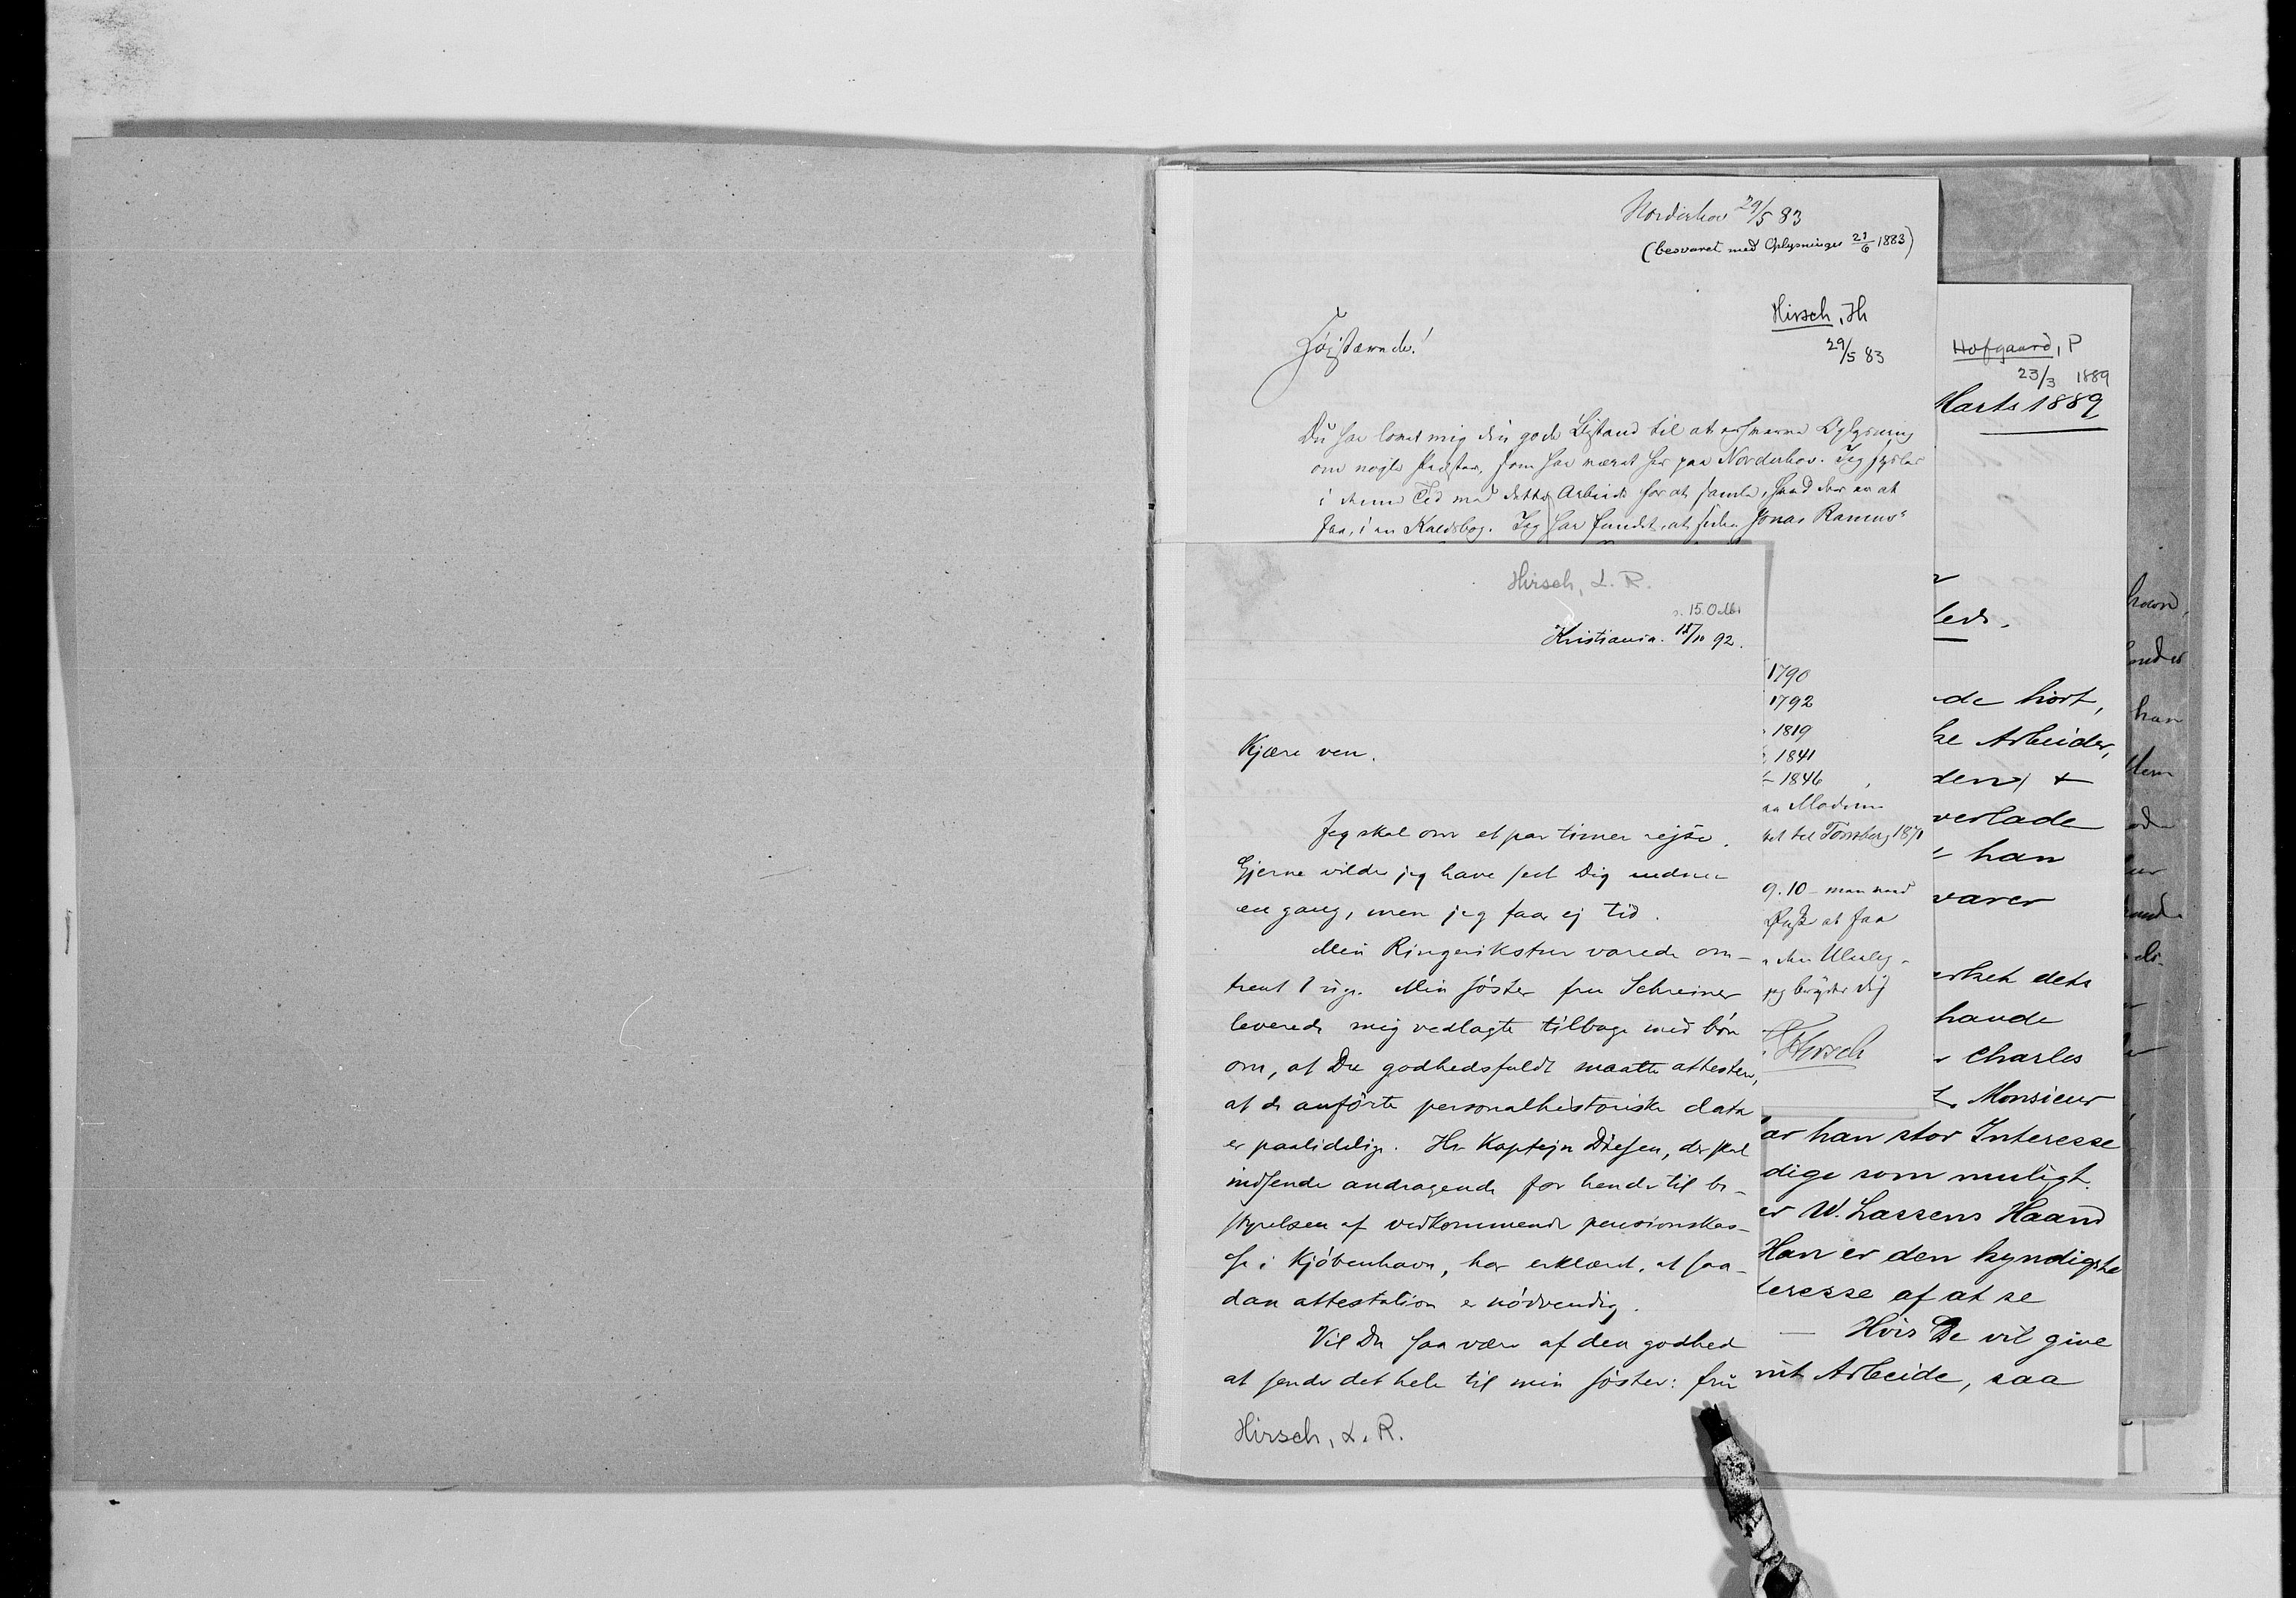 Norderhov 29/5 83
(besvaret med Oplysninger 21/6 1883)
Hirsch, H
29/5 83
Højstærede!
Du har lovet mig din gode Bistand til at erhverve Oplysning
om nogle Prester, som har været her paa Norderhov. Jeg sysler
i denne Tid med dette Arbeide for at samle, hvad der er at
faa, i en Kaldsbog. Jeg har fundet, at siden Jonas Ramus'
1790
1792
1819
1841
1846
Modum
til Tønsberg 1871
9.10 - man
at faa
den
jeg dig
Hirsch
Hirsch, L. R.
15 Octbr
Kristiania. 15/10 92.
Kjære ven.
Jeg skal om et par timer rejse.
Gjerne vilde jeg have set Dig endnu
en gang, men jeg faar ej tid.
Min Ringerikstur varede om-
trent 1 uge. Min søster fru Schreiner
leverede mig vedlagte tilbage med bøn
om, at Du godhedsfuldt maatte attestere,
at de anførte personalhistoriske data
er paalidelige. Hr Kaptejn Diesen, der skal
indsende andragende for hende til be-
styrelsen af vedkommende pensionskas-
se i Kjøbenhavn, har erklæret, at saa-
dan attestation er nødvendig.
Vil Du saa være af den godhed
at sende det hele til min søster: fru
Hirsch, L. R.
Hofgaard, P
23/3 1889
Marts 1889
leds.
de hört,
ke Arbeider,
den) +
verlade
han
varer
erket dets
havde
Charles
Monsieur
ar han stor Interesse
dige som muligt.
er W. Lassens Haand
Han er den kyndigste
teresse af at se
— Hvis De vil give
mit Arbeide, saa
han